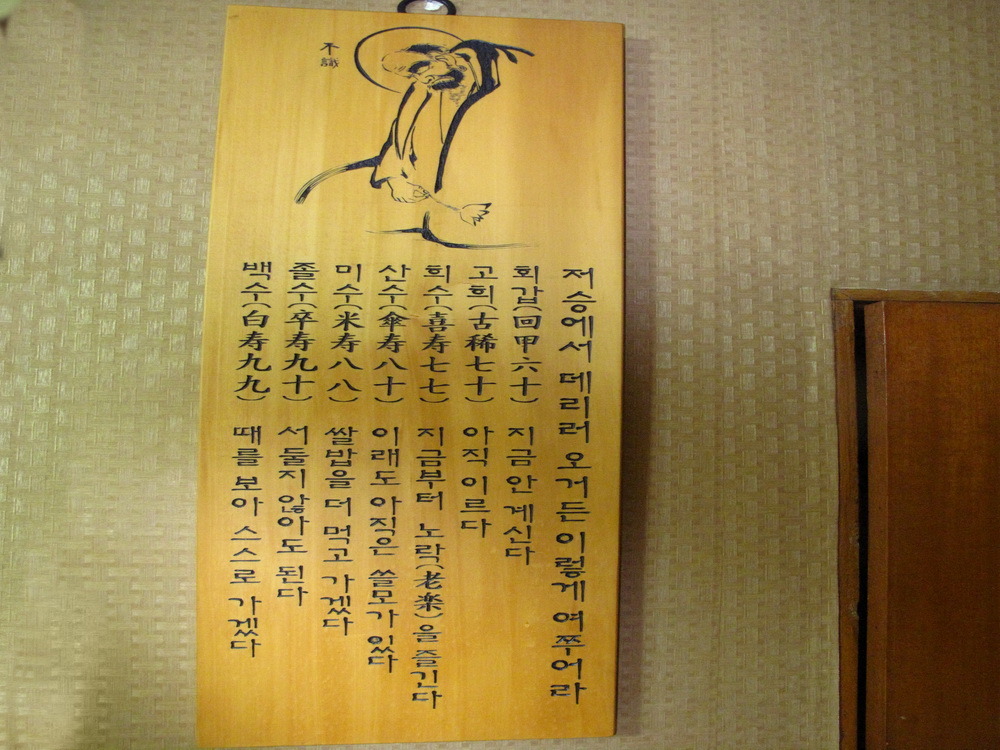 不識
저승에서 데리러 오거든 이렇게 여쭈어라
회갑(回甲六十) 지금 안 계신다
고희(古稀七十) 아직 이르다
희수(喜寿七七) 지금부터 노락(老楽)을 즐긴다
산수(傘寿八十) 이래도 아직은 쓸모가 있다
미수(米寿八八) 쌀밥을 더 먹고 가겠다
졸수(卒寿九十) 서둘지 않아도 된다
백수(白寿九九) 때를 보아 스스로 가겠다